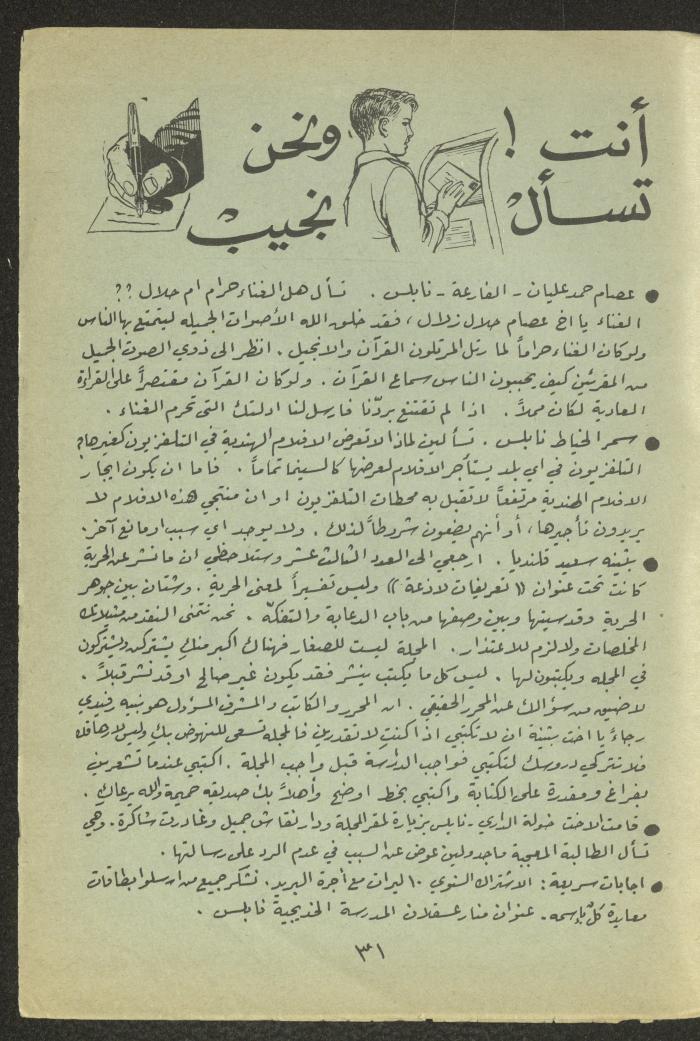 أنت ! ونحن
تسأل نجيب
● عصام حمد عليان - الفارعة - نابلس . تسأل هل الغناء حرام ام حلال ؟؟
الغناء يا اخ عصام حلال زلال ، فقد خلق الله الأصوات الجميله ليتمتع بها الناس
ولو كان الغناء حراماً لما رتل المرتلون القرآن والانجيل . انظر الى ذوي الصوت الجميل
من المقرئين كيف يحببون الناس سماع القرآن . ولو كان القرآن مقتصراً على القراءة
العادية لكان مملاً . اذا لم تقتنع بردّنا فارسل لنا ادلتك التي تحرم الغناء .
● سمر الخياط نابلس . تسألين لماذا لا تعرض الافلام الهندية في التلفزيون كغيرها؟
التلفزيون في اي بلد يستأجر الافلام لعرضها كالسينما تماماً . فاما ان يكون ايجار
الافلام الهندية مرتفعاً لا تقبل به محطات التلفزيون او ان منتجي هذه الافلام لا
يريدون تأجيرها ، أو أنهم يضعون شروطاً لذلك . ولا يوجد اي سبب او مانع آخر .
● بثينه سعيد قلنديا . ارجعي الى العدد الثالث عشر وستلاحظي ان ما نشر عن الحرية
كانت تحت عنوان (( تعريفات لاذعة )) وليس تفسيراً لمعنى الحرية . وشتان بين جوهر
الحرية وقدسيتها وبين وصفها من باب الدعابة والتفكّه . نحن نتمنى النقد من مثيلاتك
المخلصات ولا لزوم للاعتذار . المجلة ليست للصغار فهناك اكبر منكِ يشتركن ويشتركون
في المجله ويكتبون لها . ليس كل ما يكتب ينشر فقد يكون غير صالح او قد نشر قبلاً .
لا ضير من سؤالك عن المحرر الحقيقي . ان المحرر والكاتب والمشرف المسؤول هو نبيه رفيدي
رجاءً يا اخت بثينة ان لا تكتبي اذا كنتِ لا تقدرين فالمجلة تسعى للنهوض بكِ وليس لارهاقك
فلا تتركي دروسك لتكتبي فواجب الدراسة قبل واجب المجلة . اكتبي عندما تشعرين
بفراغ ومقدرة على الكتابة واكتبي بخط اوضح وأهلاً بك صديقه حميمة والله يرعاكِ .
● قامت الاخت خولة الداري - نابلس بزيارة لمقر المجلة ودار نقاش جميل وغادرت شاكرة . وهي
تسأل الطالبة المعجبة ماجدولين عوض عن السبب في عدم الرد على رسالتها .
● اجابات سريعة : الاشتراك السنوي ١٠ ليرات مع أجرة البريد . نشكر جميع من ارسلوا بطاقات
معايدة كلٌ بإسمه . عنوان منار عسقلان المدرسة الخديجية نابلس .
٣١